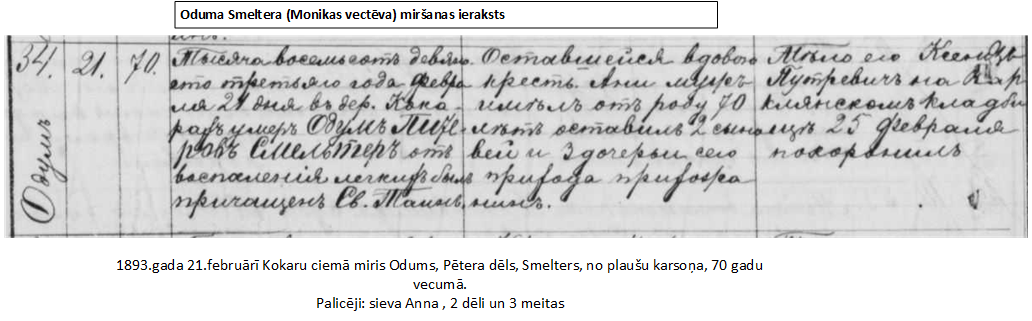 Oduma Smeltera (Monikas vectēva) miršanas ieraksts
34.
Одумъ
21.
70.
Тысяча восемьсотъ девяно
сто третьяго года Февра
ля 21 дня въ дер. Кока-
рахъ умеръ Одумъ Пите-
ровъ Смельтеръ отъ
воспаленія легкихъ былъ
причащенъ Св. Таинъ,
Оставшейся вдовою
крестъ. Анни мужъ
имѣлъ отъ роду 70
лѣтъ оставилъ 2 сыно
вей и 3 дочерьи сего
прихода прихожа
нинъ.
Тѣло его Ксендзъ
Путревичъ на Вар
клянскомъ кладби
щѣ 25 Февраля
похоронилъ
1893.gada 21.februārī Kokaru ciemā miris Odums, Pētera dēls, Smelters, no plaušu karsoņa, 70 gadu
vecumā.
Palicēji: sieva Anna , 2 dēli un 3 meitas